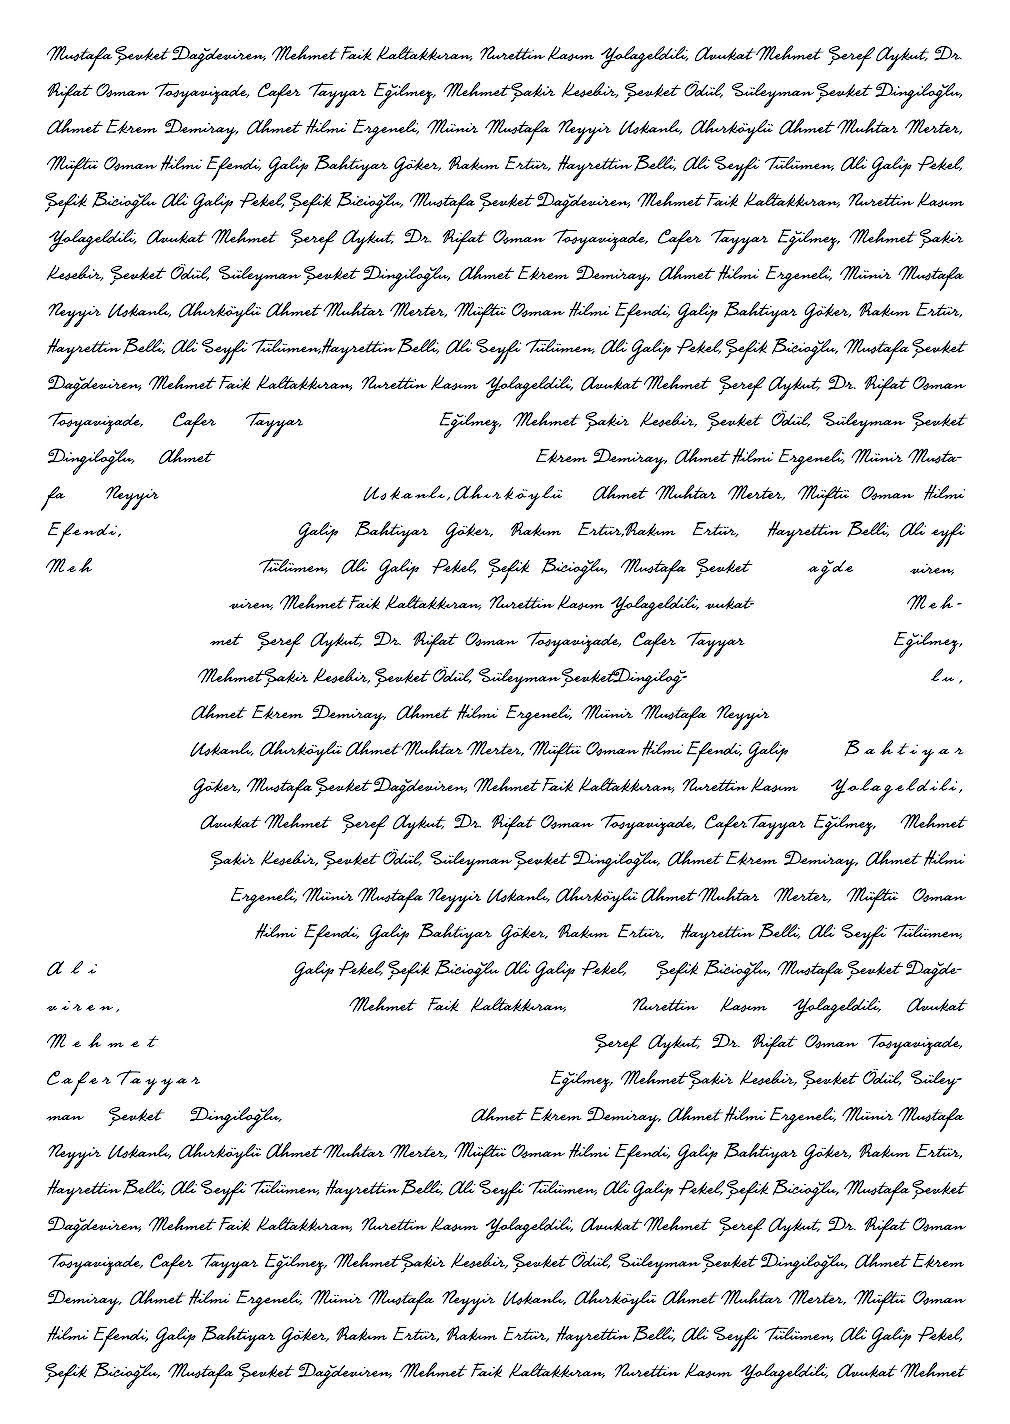 Mustafa Şevket Dağdeviren, Mehmet Faik Kaltakkıran, Nurettin Kasım Yolageldili, Avukat Mehmet Şeref Aykut, Dr.
Rifat Osman Tosyavizade, Cafer Tayyar Eğilmez, Mehmet Şakir Kesebir, Şevket Ödül, Süleyman Şevket Dingiloğlu,
Ahmet Ekrem Demiray, Ahmet Hilmi Ergeneli, Münir Mustafa Neyyir Uskanlı, Ahırköylü Ahmet Muhtar Merter,
Müftü Osman Hilmi Efendi, Galip Bahtiyar Göker, Rakım Ertür, Hayrettin Belli, Ali Seyfi Tülümen, Ali Galip Pekel,
Şefik Bicioğlu Ali Galip Pekel, Şefik Bicioğlu, Mustafa Şevket Dağdeviren, Mehmet Faik Kaltakkıran, Nurettin Kasım
Yolageldili, Avukat Mehmet Şeref Aykut, Dr. Rifat Osman Tosyavizade, Cafer Tayyar Eğilmez, Mehmet Şakir
Kesebir, Şevket Ödül, Süleyman Şevket Dingiloğlu, Ahmet Ekrem Demiray, Ahmet Hilmi Ergeneli, Münir Mustafa
Neyyir Uskanlı, Ahırköylü Ahmet Muhtar Merter, Müftü Osman Hilmi Efendi, Galip Bahtiyar Göker, Rakım Ertür,
Hayrettin Belli, Ali Seyfi Tülümen,Hayrettin Belli, Ali Seyfi Tülümen, Ali Galip Pekel, Şefik Bicioğlu, Mustafa Şevket
Dağdeviren, Mehmet Faik Kaltakkıran, Nurettin Kasım Yolageldili, Avukat Mehmet Şeref Aykut, Dr. Rifat Osman
Tosyavizade, Cafer Tayyar Eğilmez, Mehmet Şakir Kesebir, Şevket Ödül, Süleyman Şevket
Dingiloğlu, Ahmet Ekrem Demiray, Ahmet Hilmi Ergeneli, Münir Musta-
fa Neyyir Uskanlı, Ahırköylü Ahmet Muhtar Merter, Müftü Osman Hilmi
Efendi, Galip Bahtiyar Göker, Rakım Ertür,Rakım Ertür, Hayrettin Belli, Ali eyfi
Meh Tülümen, Ali Galip Pekel, Şefik Bicioğlu, Mustafa Şevket ağde viren,
viren, Mehmet Faik Kaltakkıran, Nurettin Kasım Yolageldili, vukat- Meh-
met Şeref Aykut, Dr. Rifat Osman Tosyavizade, Cafer Tayyar Eğilmez,
Mehmet Şakir Kesebir, Şevket Ödül, Süleyman ŞevketDingiloğ- lu,
Ahmet Ekrem Demiray, Ahmet Hilmi Ergeneli, Münir Mustafa Neyyir
Uskanlı, Ahırköylü Ahmet Muhtar Merter, Müftü Osman Hilmi Efendi, Galip Bahtiyar
Göker, Mustafa Şevket Dağdeviren, Mehmet Faik Kaltakkıran, Nurettin Kasım Yolageldili,
Avukat Mehmet Şeref Aykut, Dr. Rifat Osman Tosyavizade, Cafer Tayyar Eğilmez, Mehmet
Şakir Kesebir, Şevket Ödül, Süleyman Şevket Dingiloğlu, Ahmet Ekrem Demiray, Ahmet Hilmi
Ergeneli, Münir Mustafa Neyyir Uskanlı, Ahırköylü Ahmet Muhtar Merter, Müftü Osman
Hilmi Efendi, Galip Bahtiyar Göker, Rakım Ertür, Hayrettin Belli, Ali Seyfi Tülümen,
Ali Galip Pekel, Şefik Bicioğlu Ali Galip Pekel, Şefik Bicioğlu, Mustafa Şevket Dağde-
viren, Mehmet Faik Kaltakkıran, Nurettin Kasım Yolageldili, Avukat
Mehmet Şeref Aykut, Dr. Rifat Osman Tosyavizade,
Cafer Tayyar Eğilmez, Mehmet Şakir Kesebir, Şevket Ödül, Süley-
man Şevket Dingiloğlu, Ahmet Ekrem Demiray, Ahmet Hilmi Ergeneli, Münir Mustafa
Neyyir Uskanlı, Ahırköylü Ahmet Muhtar Merter, Müftü Osman Hilmi Efendi, Galip Bahtiyar Göker, Rakım Ertür,
Hayrettin Belli, Ali Seyfi Tülümen, Hayrettin Belli, Ali Seyfi Tülümen, Ali Galip Pekel, Şefik Bicioğlu, Mustafa Şevket
Dağdeviren, Mehmet Faik Kaltakkıran, Nurettin Kasım Yolageldili, Avukat Mehmet Şeref Aykut, Dr. Rifat Osman
Tosyavizade, Cafer Tayyar Eğilmez, Mehmet Şakir Kesebir, Şevket Ödül, Süleyman Şevket Dingiloğlu, Ahmet Ekrem
Demiray, Ahmet Hilmi Ergeneli, Münir Mustafa Neyyir Uskanlı, Ahırköylü Ahmet Muhtar Merter, Müftü Osman
Hilmi Efendi, Galip Bahtiyar Göker, Rakım Ertür, Rakım Ertür, Hayrettin Belli, Ali Seyfi Tülümen, Ali Galip Pekel,
Şefik Bicioğlu, Mustafa Şevket Dağdeviren, Mehmet Faik Kaltakkıran, Nurettin Kasım Yolageldili, Avukat Mehmet